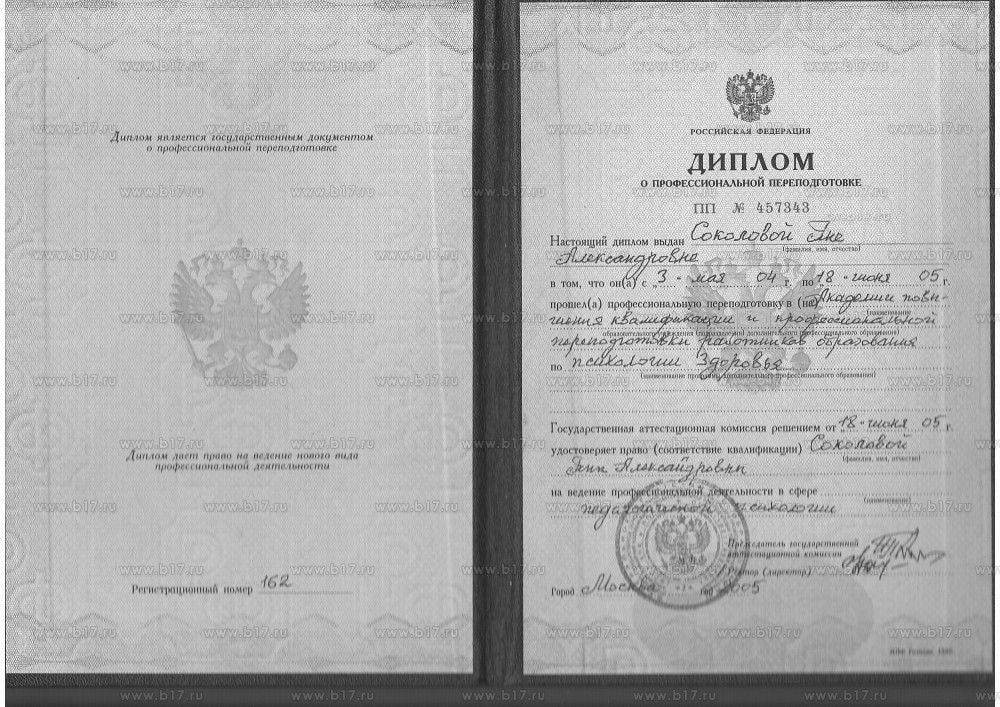 Диплом является государственным документом
о профессиональной переподготовке
Диплом дает право на ведение нового вида
профессиональной деятельности
Регистрационный номер 162
РОССИЙСКАЯ ФЕДЕРАЦИЯ
ДИПЛОМ
О ПРОФЕССИОНАЛЬНОЙ ПЕРЕПОДГОТОВКЕ
ПП № 457343
Настоящий диплом выдан Соколовой Яне
(фамилия, имя, отчество)
Александровне
в том, что он(а) с „3“ мая 04 г. по „18“ июня 05 г.
прошел(а) профессиональную переподготовку в (на) Академии повы-
(наименование
шения квалификации и профессиональной
образовательного учреждения (подразделения) дополнительного профессионального образования)
переподготовки работников образования
по психологии здоровья
(наименование программы дополнительного профессионального образования)
Государственная аттестационная комиссия решением от „18“ июня 05 г.
удостоверяет право (соответствие квалификации) Соколовой
(фамилия, имя, отчество)
Яны Александровны
на ведение профессиональной деятельности в сфере
(наименование)
педагогической психологии
Председатель государственной
аттестационной комиссии
Ректор (директор)
Город Москва год 2005
www.b17.ru